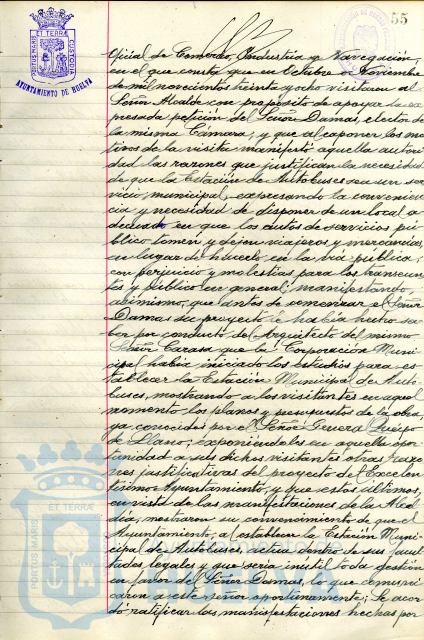 55
PORTUS MARIS ET TERRAE CUSTODIA
AYUNTAMIENTO DE HUELVA
Oficial de Comercio, Industria y Navegación,
en el que consta que en Octubre o Noviembre
de mil novecientos treinta y ocho visitaron al
Señor Alcalde con propósito de apoyar la ex-
presada petición del Señor Damas, elector de
la misma Cámara, y que al exponer los mo-
tivos de la visita manifestó aquella autori-
dad las razones que justifican la necesidad
de que la Estación de Autobuses sea un ser-
vicio municipal, expresando la convenien-
cia y necesidad de disponer de un local a-
decuado en que los autos de servicios pú-
blico tomen y dejen viajeros y mercancías,
en lugar de hacerlo en la vía pública,
con perjuicio y molestias para los transeun-
tes y público en general; manifestando,
asimismo, que antes de comenzar el Señor
Damas su proyecto le había hecho sa-
ber por conducto del Arquitecto del mismo
Señor Carasa que la Corporación Muni-
cipal había iniciado los estudios para es-
tablecer la Estación Municipal de Auto-
buses, mostrando a los visitantes en aquel
momento los planos y presupuestos de la obra,
ya conocidos por el Señor General Queipo
de Llano; exponiéndoles en aquella opor-
tunidad a sus dichos visitantes otras razo-
nes justificativas del proyecto del Excelen-
tísimo Ayuntamiento, y que estos últimos,
en vista de las manifestaciones de la Alcal-
día, mostraron su convencimiento de que el
Ayuntamiento, al establecer la Estación Muni-
cipal de Autobuses, actúa dentro de sus facul-
tades legales y que sería inútil toda gestión
en favor del Señor Damas, lo que comuni-
caron a este señor oportunamente; Se acor-
dó ratificar las manifestaciones hechas por
PORTUS MARIS ET TERRAE